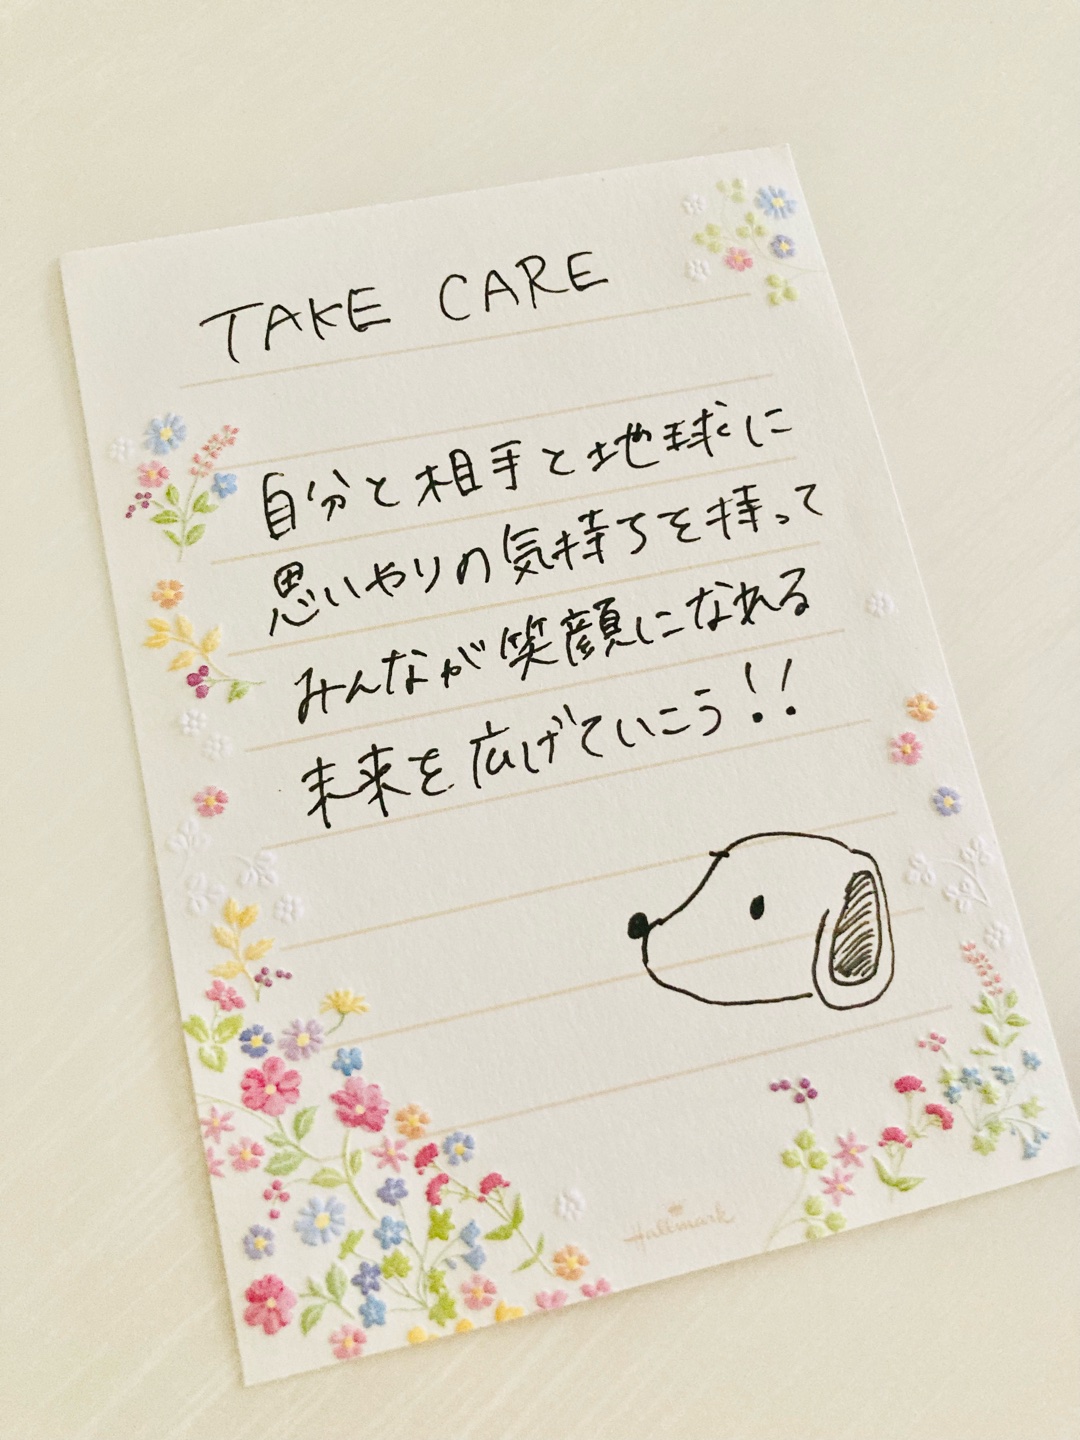 TAKE CARE
自分と相手と地球に
思いやりの気持ちを持って
みんなが笑顔になれる
未来を広げていこう!!
Hallmark